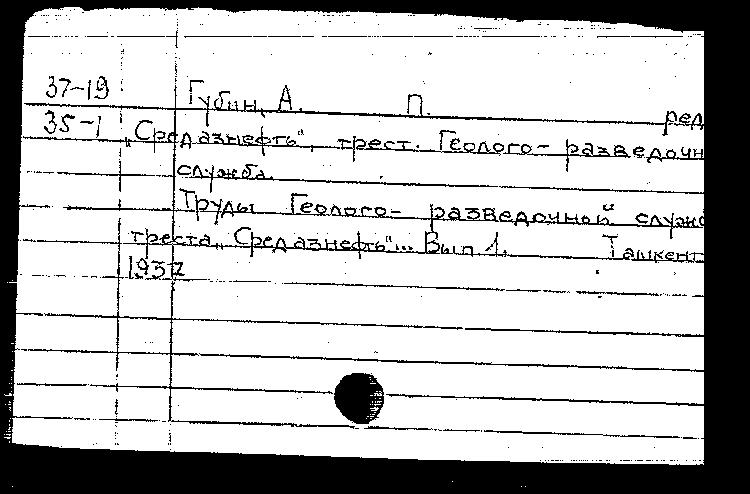 37-19 Губин, А. П. ред
35-1 „Средазнефть", трест. Геолого- разведочн
служба.
Труды Геолого- разведочной служ
треста „Средазнефть"... Вып 1. Ташкент
1937